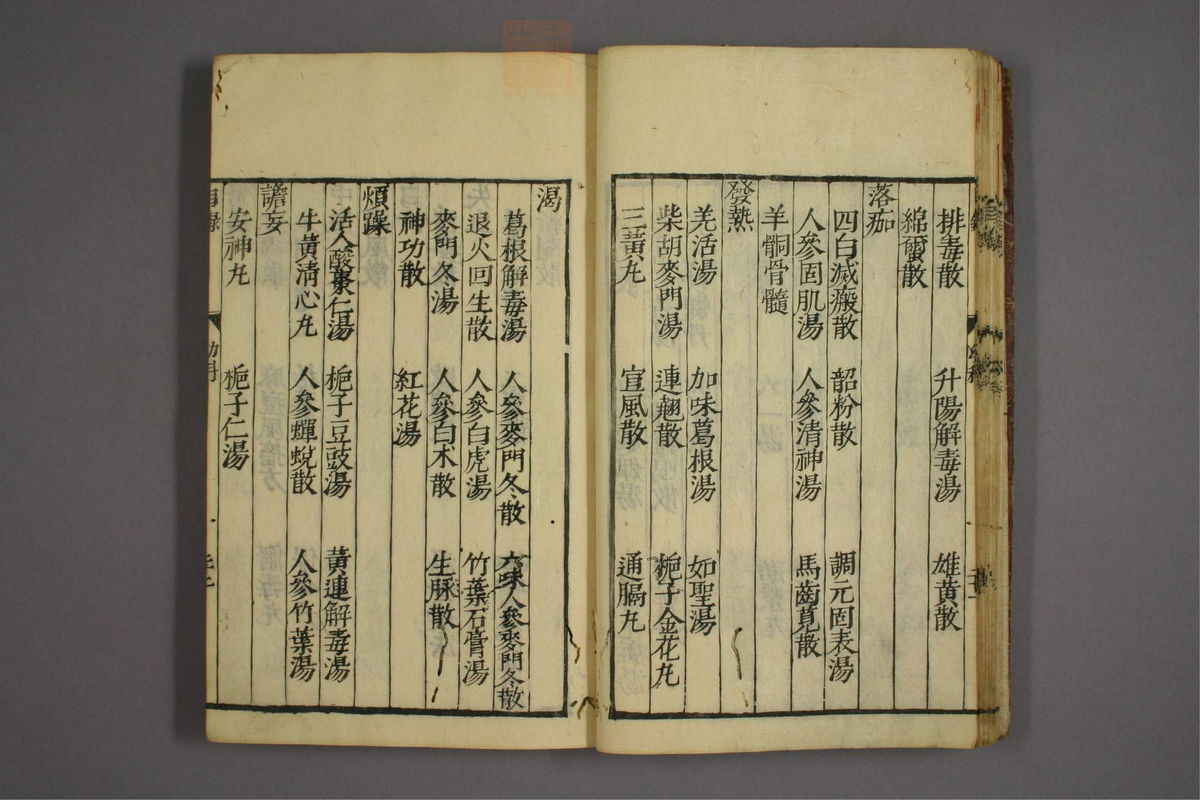 排毒散 升陽解毒湯 雄黃散
綿蠒散
落痂
四白滅瘢散 韶粉散 調元固表湯
人參固肌湯 人參清神湯 馬齒莧散
羊䯒骨髓
發熱
羌活湯 加味葛根湯 如聖湯
柴胡麥門湯 連翹散 梔子金花丸
三黃丸 宣風散 通膈丸
渴
葛根解毒湯 人參麥門冬散 六味人參麥門冬散
退火回生散 人參白虎湯 竹葉石膏湯
麥門冬湯 人參白朮散 生脉散
神功散 紅花湯
煩躁
活人酸棗仁湯 梔子豆豉湯 黃連解毒湯
牛黃清心丸 人參蟬蛻散 人參竹葉湯
譫妄
安神丸 梔子仁湯
目錄